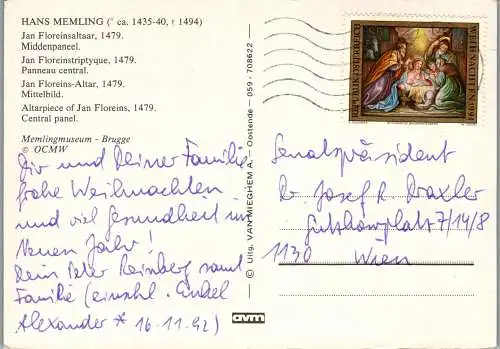 HANS MEMLING (° ca. 1435-40, † 1494)
Jan Floreinsaltaar, 1479.
Middenpaneel.
Jan Floreinstriptyque, 1479.
Panneau central.
Jan Floreins-Altar, 1479.
Mittelbild.
Altarpiece of Jan Floreins, 1479.
Central panel.
Memlingmuseum - Brugge
© OCMW
Dir und Deiner Familie
frohe Weihnachten
und viel Gesundheit im
Neuen Jahr!
Dein Peter Reinberg samt
Familie (einschl. Enkel
Alexander * 16.11.92)
© Uitg. VAN MIEGHEM A. - Oostende - 059 - 708622
avm
REPUBLIK ÖSTERREICH
WEIHNACHTEN 1991
Senatspräsident
Dr Josef R. Draxler
Gutzkowplatz 7/14/8
1130 Wien